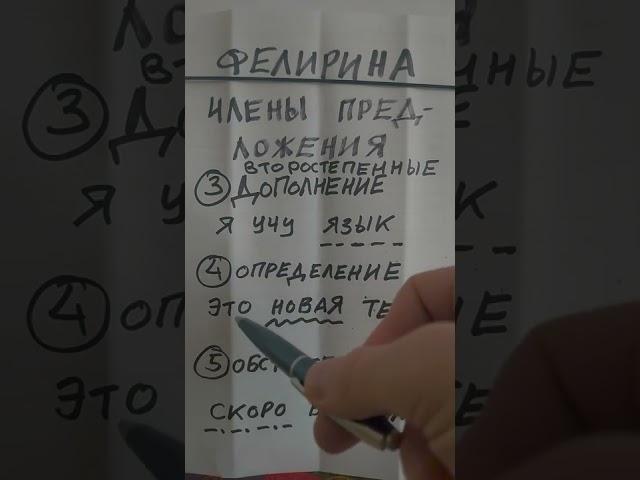 ФЕЛИРИНА
ЧЛЕНЫ ПРЕД-
ЛОЖЕНИЯ
ВТОРОСТЕПЕННЫЕ
3 ДОПОЛНЕНИЕ
Я УЧУ ЯЗЫК
4 ОПРЕДЕЛЕНИЕ
ЭТО НОВАЯ
5
СКОРО